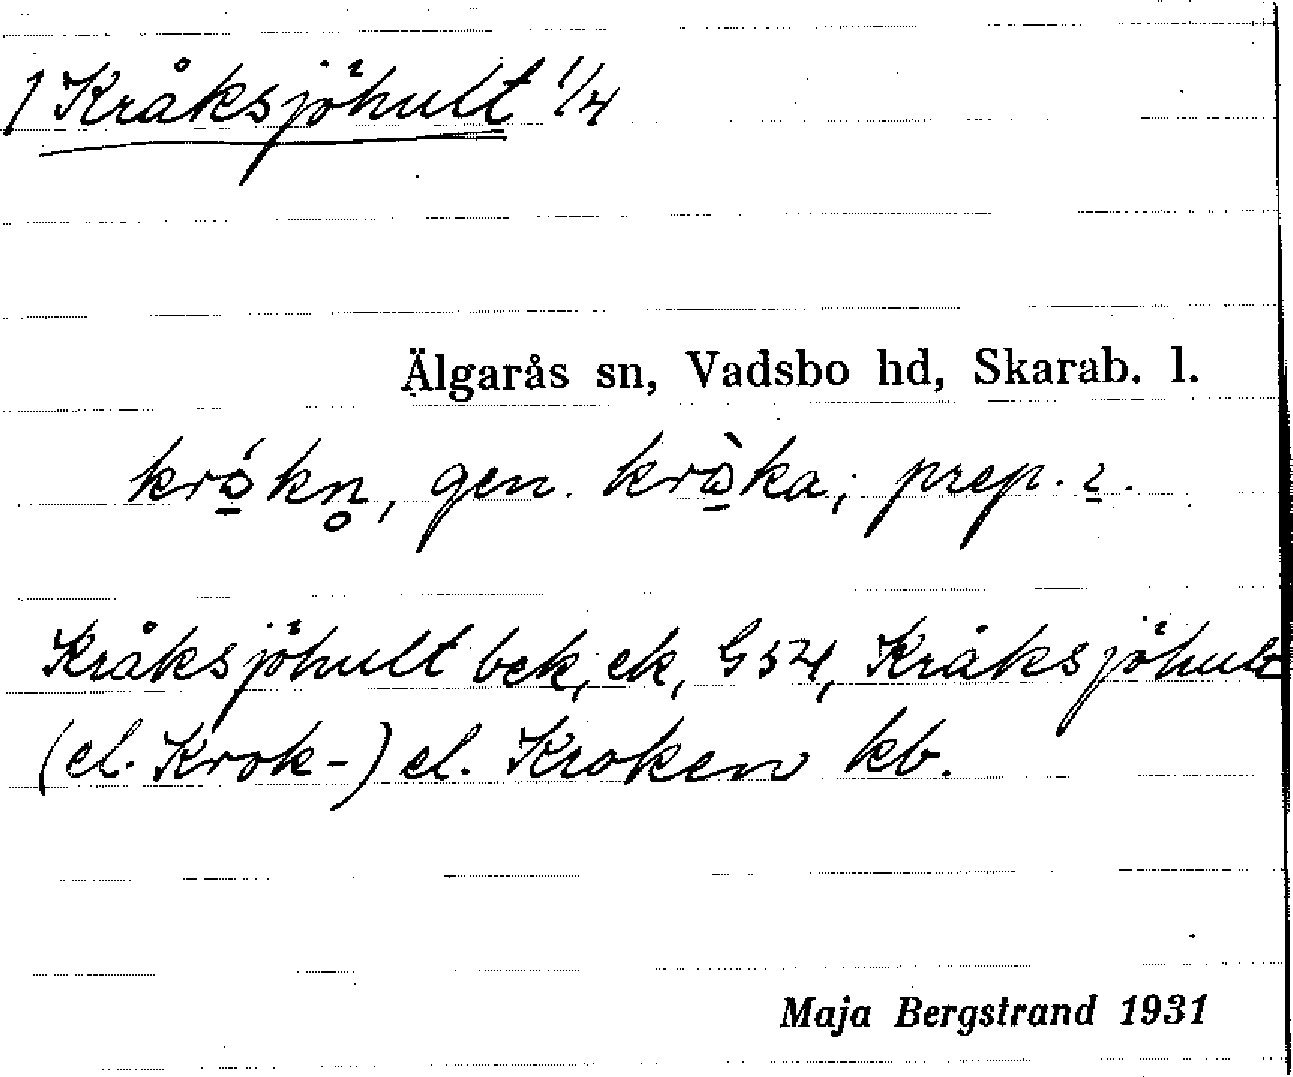 1 Kråksjöhult 1/4
Älgarås sn, Vadsbo hd, Skarab. l.
krɔ̱́kn̥, gen. krɔ̱̀ka; prep. ɩ̱.
Kråksjöhult bek, ek, G54, Kråksjöhult
(el. Krok-) el. Kroken kb.
Maja Bergstrand 1931